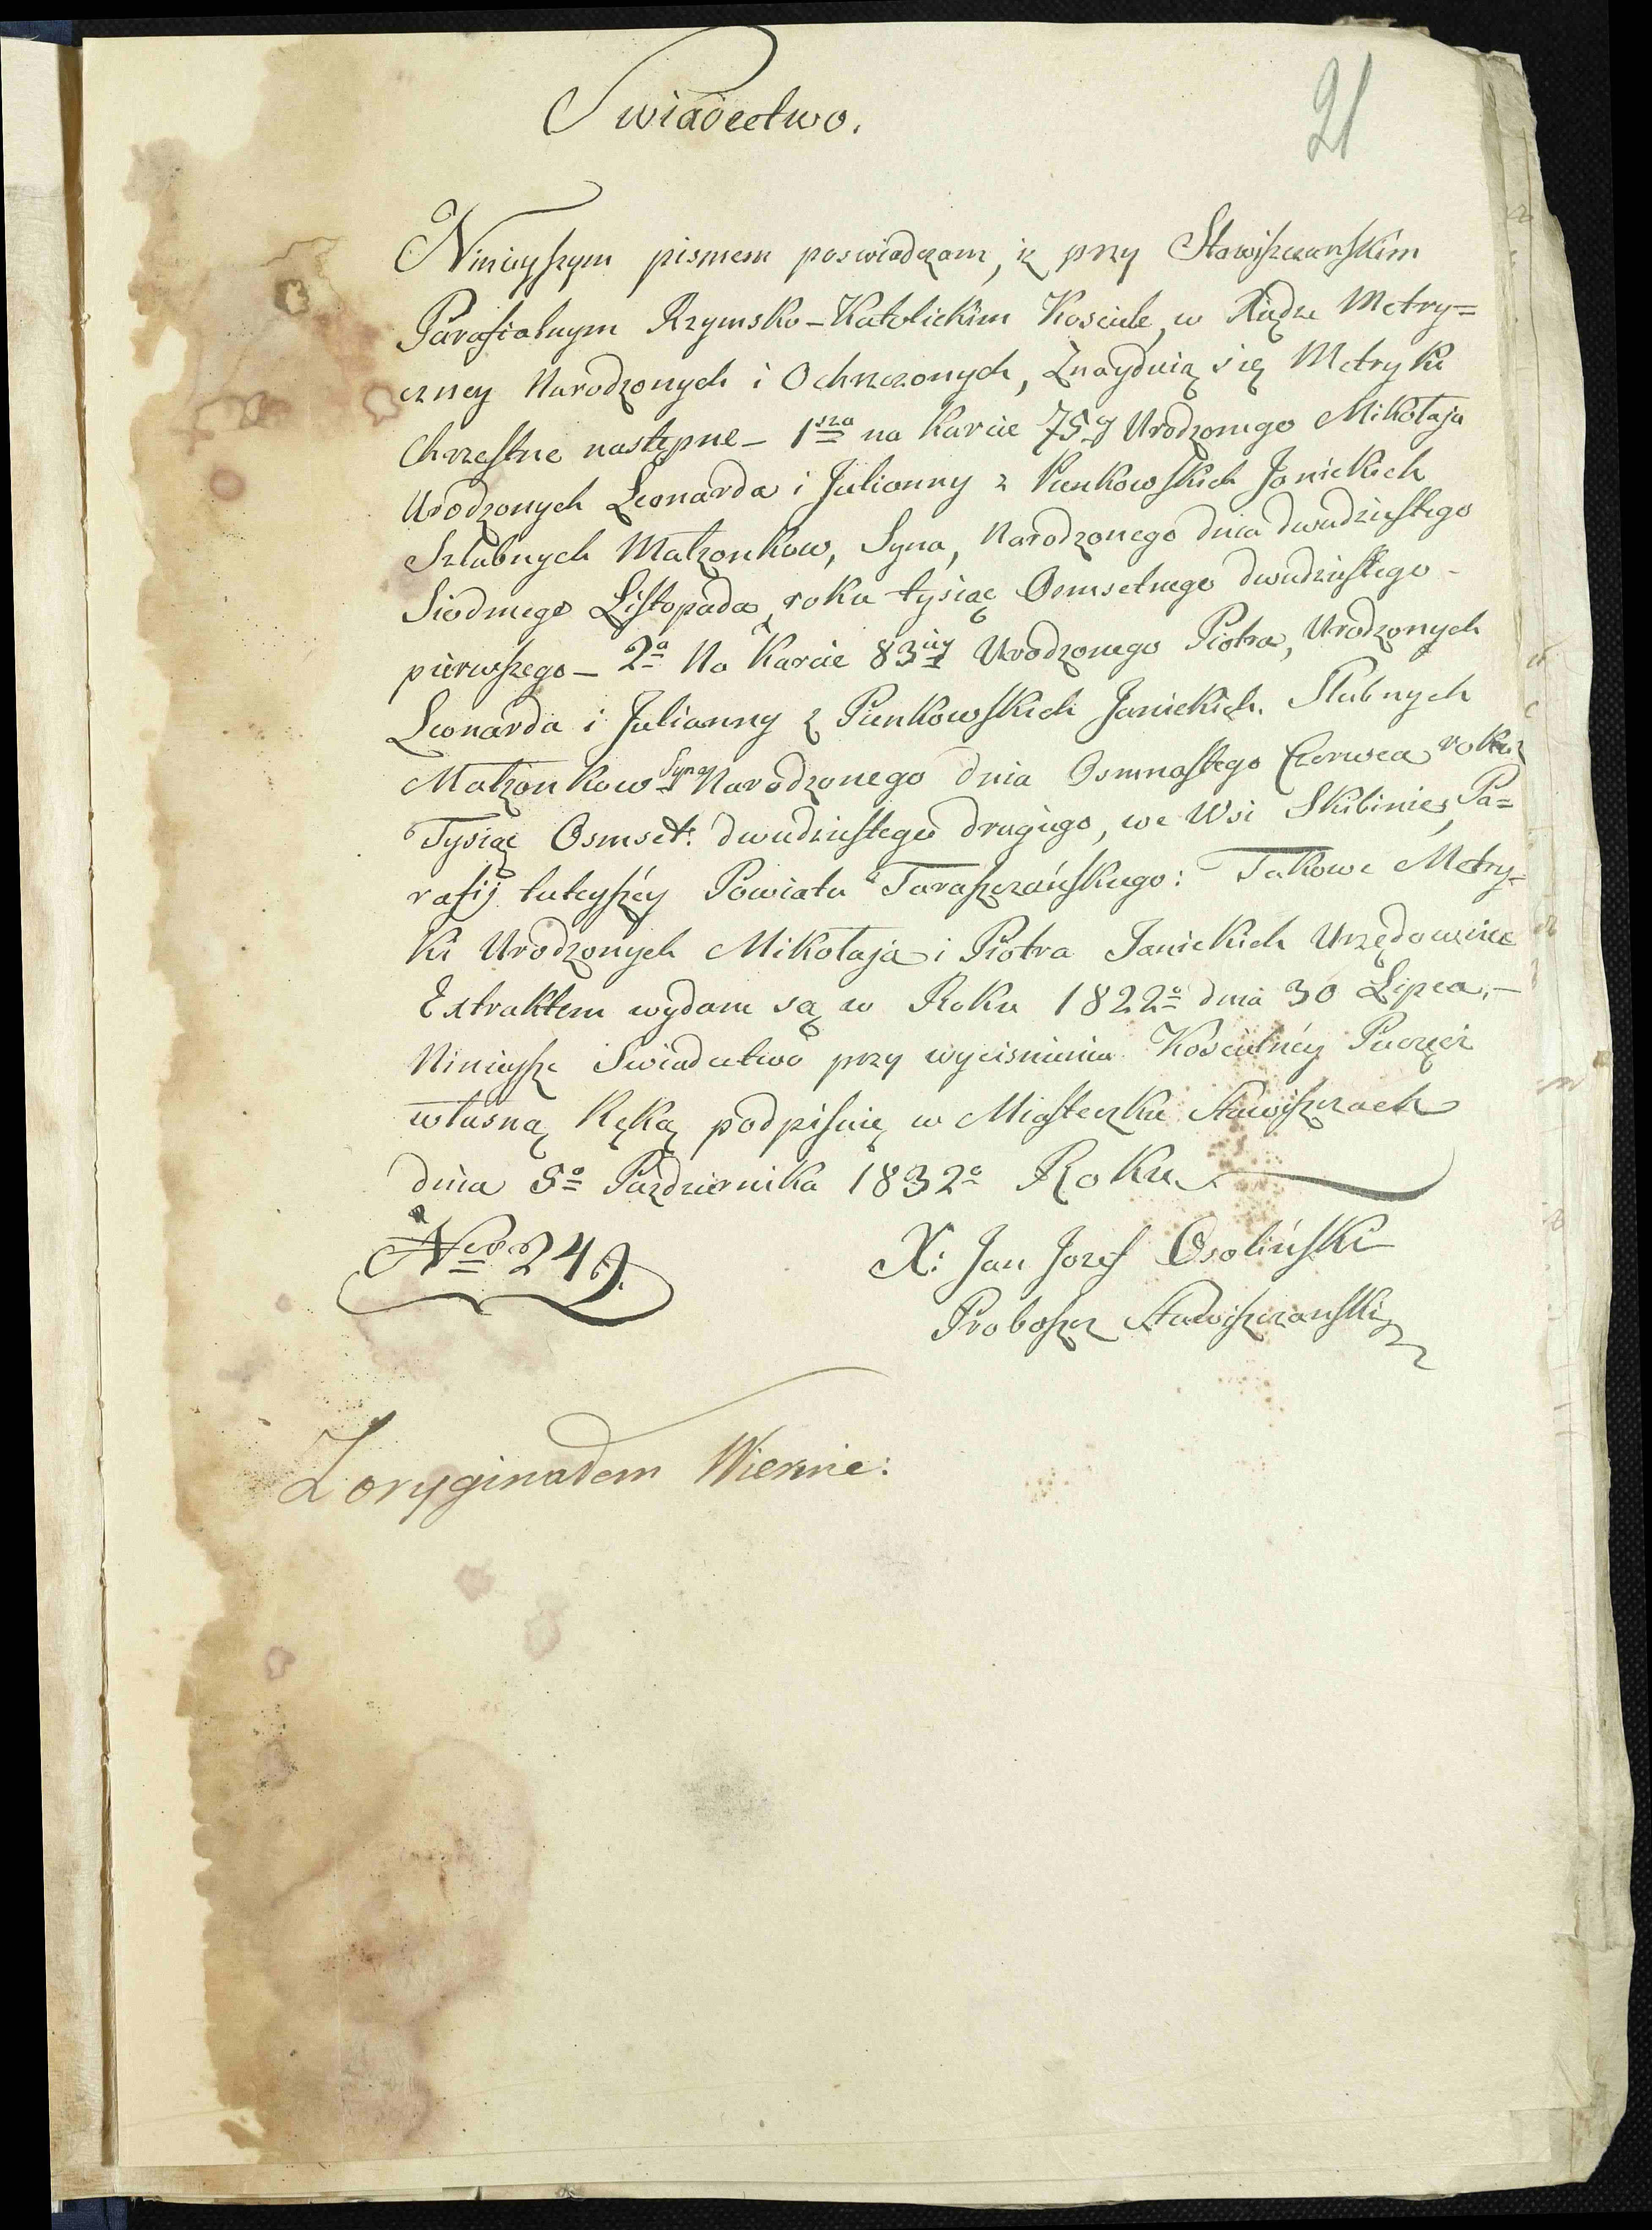 Swiadectwo.
21
Ninieyszym pismem poswiadczam, iz przy Stawiszczanskim
Parafialnym Rzymsko-Katolickim Kosciele, w Xiędze Metry=
czney Narodzonych i Ochrzczonych, Znayduią się Metryki
Chrzestne następne – 1sza na Karcie 75y Urodzonego Mikołaja
Urodzonych Leonarda i Julianny z Pienkowskich Janickich
Szlubnych Małżonkow, Syna, Narodzonego dnia dwudziestego
Siodmego Listopada, roku tysiąc Osmsetnego dwudziestego
pierwszego – 2a Na Karcie 83iey Urodzonego Piotra, Urodzonych
Leonarda i Julianny z Pienkowskich Janickich. Slubnych
Małżonkow Syna Narodzonego dnia Osmnastego Czerwca roku
Tysiąc Osmset: dwudziestego drugiego, we Wsi Skibince, Pa=
rafij tuteyszéy Powiatu Taraszczańskiego: Takowe Metry=
ki Urodzonych Mikołaja i Piotra Janickich Urzędownie
Extraktem wydane są w Roku 1822o dnia 30 Lipca. –
Ninieysze Swiadectwo przy wycisnieniu Kościelnéy Pieczęci
własną Ręką podpisuię w Miasteczku Stawiszczach
dnia 8o Pazdziernika 1832o Roku.
Nro 249.
X: Jan Jozef Ossoliński
Proboszcz Stawiszczanski
Z oryginałem Wiernie: